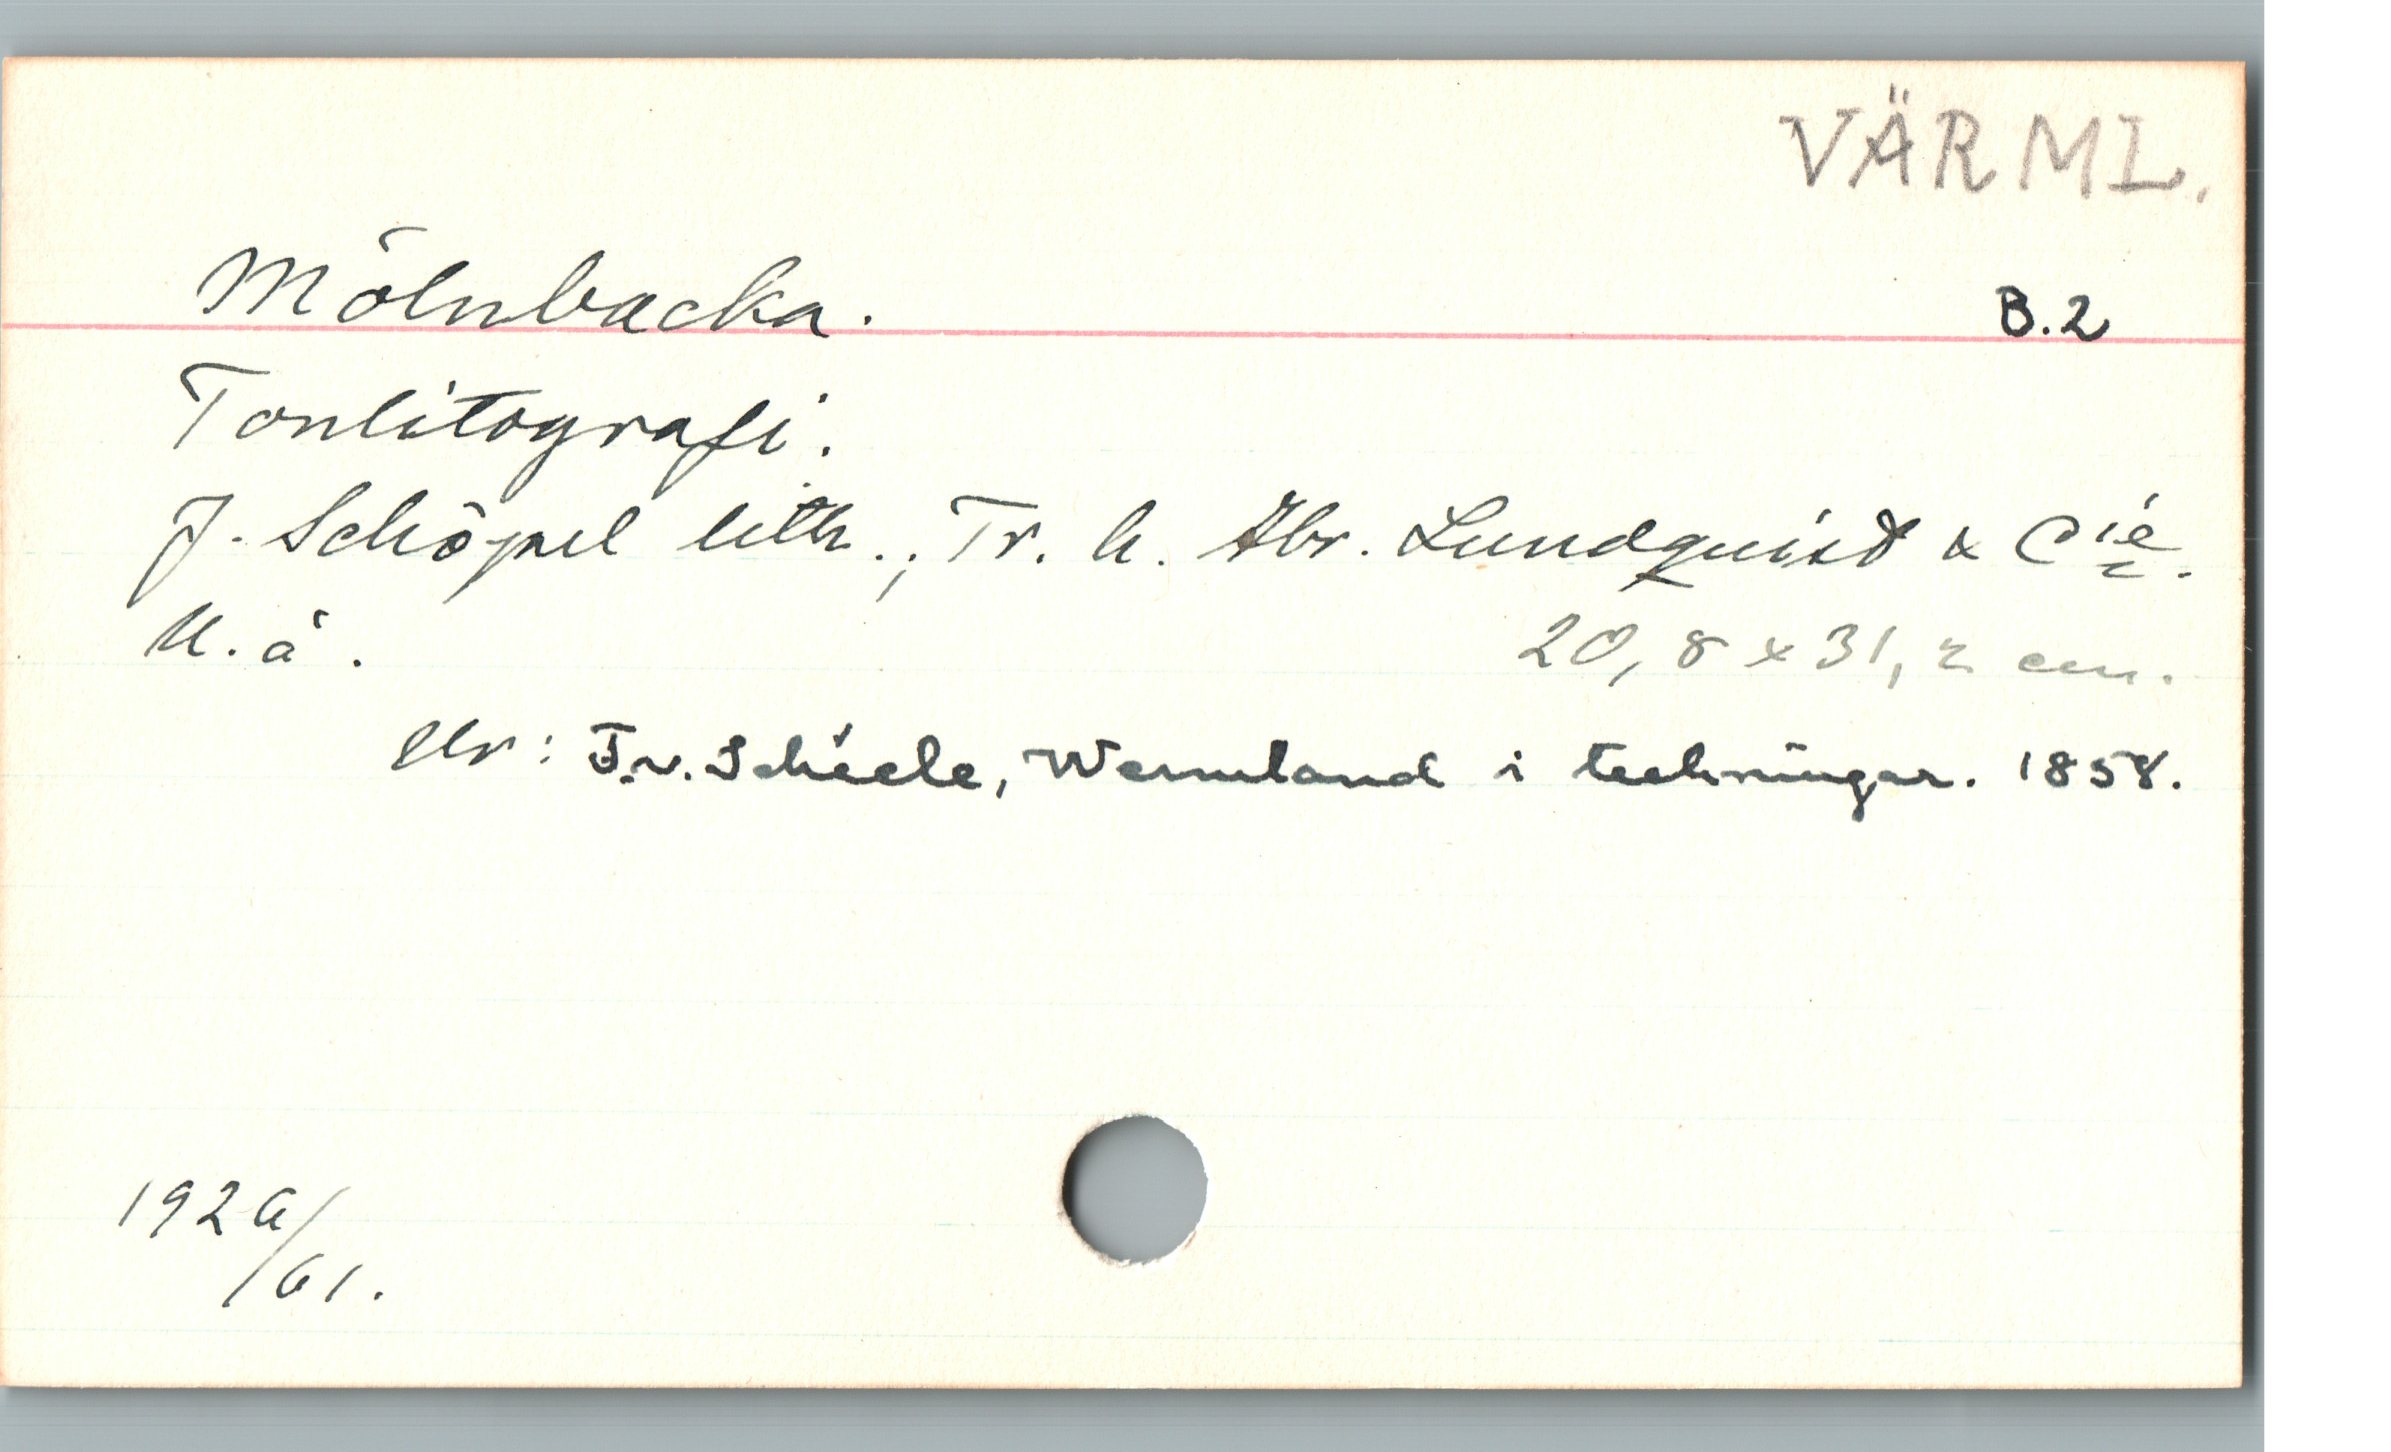 VÄRML.
Mölnbacka.
B.2
Tonlitografi.
J. Schöpel lith.; Tr. h. Abr. Lundquist & Cie.
U. å.
20,8 x 31,2 cm.
Ur: F.v. Schéele, Wermland i teckningar. 1858.
192a/
/61.